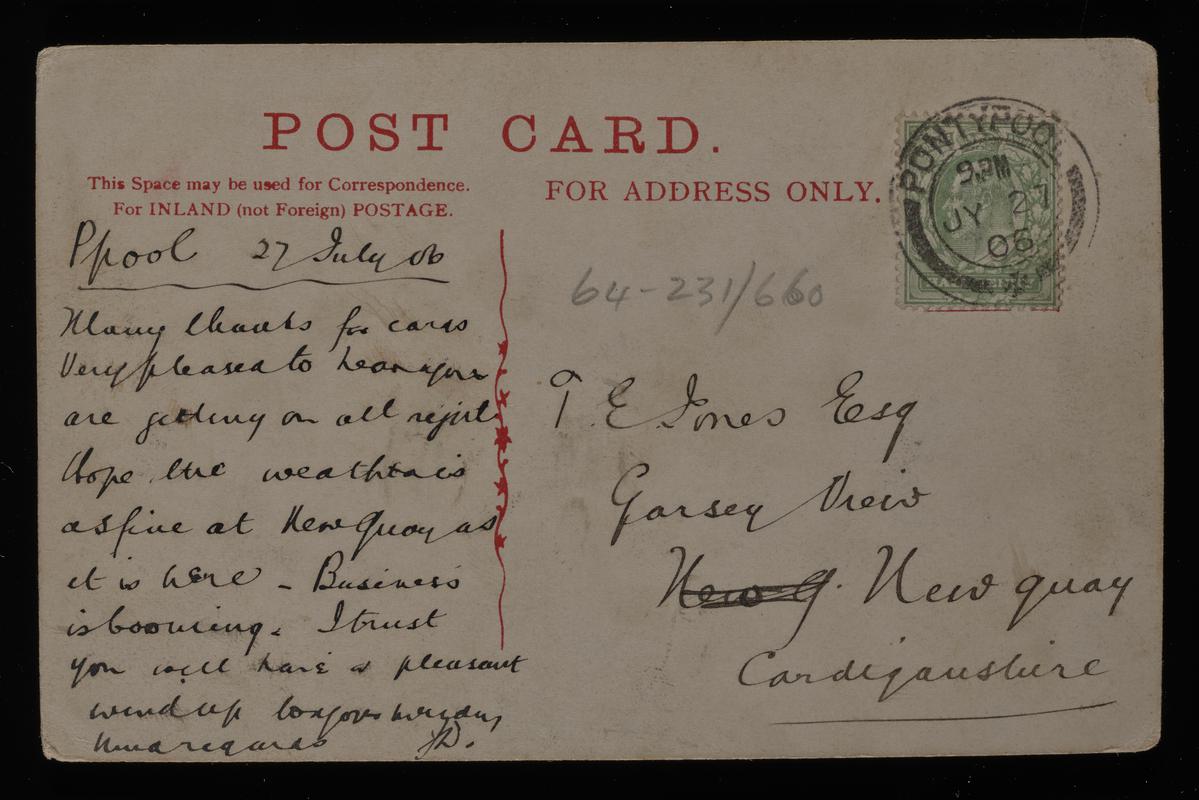 POST CARD.
This Space may be used for Correspondence.
For INLAND (not Foreign) POSTAGE.
FOR ADDRESS ONLY.
PONTYPOOL
9.PM
JY 27
06
Ppool 27 July 06
Many thanks for cards
Very pleased to hear you
are getting on all right
Hope the weather is
as fine at New Quay as
it is here - Business
is booming. I trust
you will have a pleasant
wind up to your holiday
Kind regards JD.
64-231/660
T. E Jones Esq
Garsey View
New Q. New quay
Cardiganshire